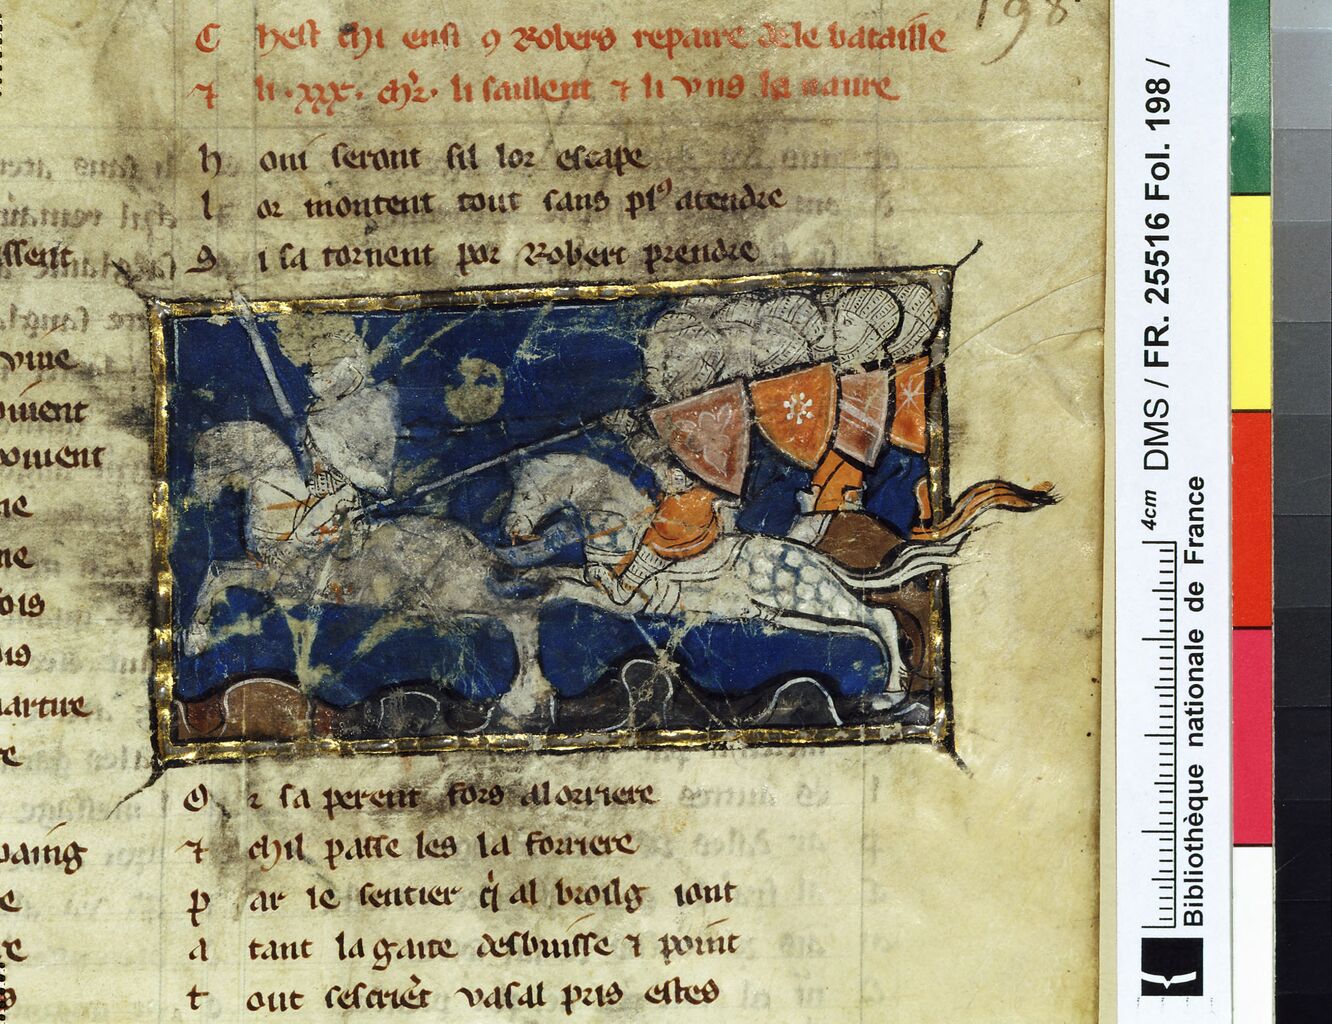 198
C hest chi ensi ꝯ Robers repaire dele bataille
⁊ li .xxx. chr. li saillent ⁊ li vns le naure
h oni seront sil lor escape
l or montent tout sans plꝰ atendre
g i sa tornent por Robert prendre
issent
viue
oiuent
ne
ne
ois
is
martire
re
O r sa perent fors al orriere
⁊ chil passe les la forriere
p ar le sentier q̇ al broilg iont
a tant la gaite desbuisse ⁊ point
t out sescriet vasal pris estes
paing
e
re
s
4cm DMS / FR. 25516 Fol. 198 /
Bibliothèque nationale de France